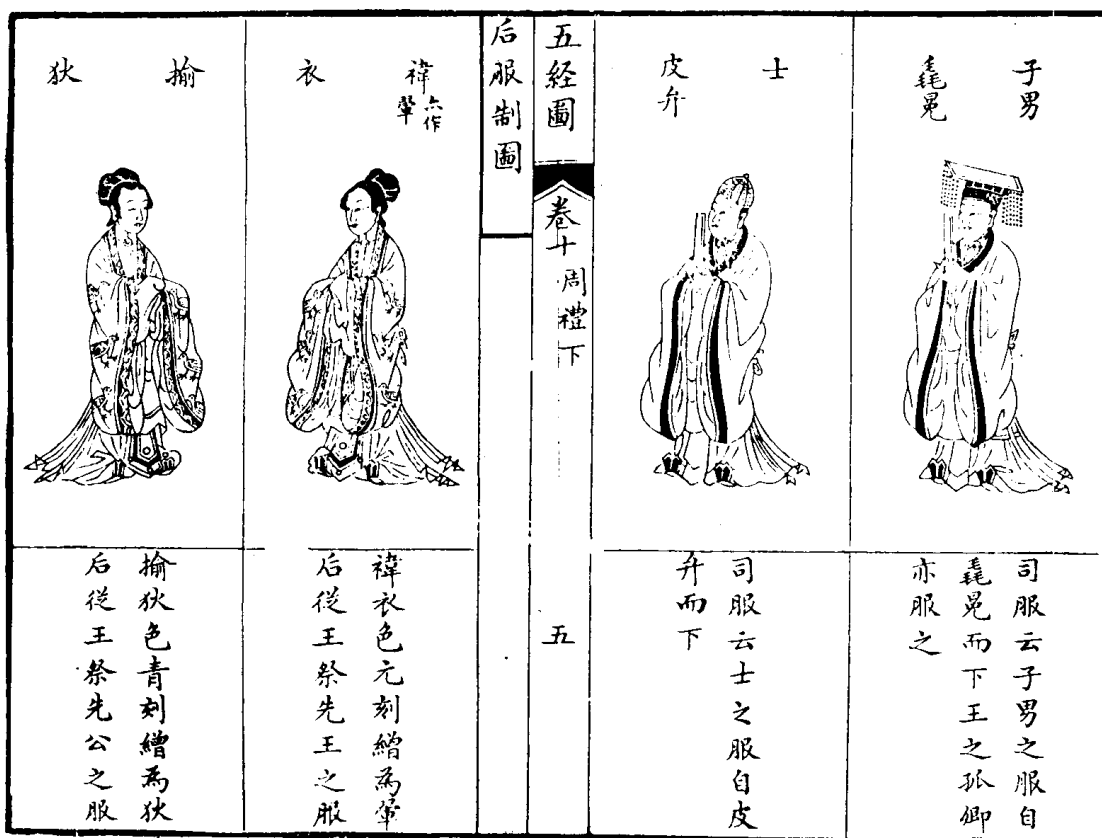 子男
毳冕
司服云子男之服自
毳冕而下王之孤卿
亦服之
士
皮弁
司服云士之服自皮
弁而下
五経圖
卷十周禮下
五
后服制圖
褘
亦作
翬
衣
褘衣色元刻繒為翬
后從王祭先王之服
揄
狄
揄狄色青刻繒為狄
后從王祭先公之服